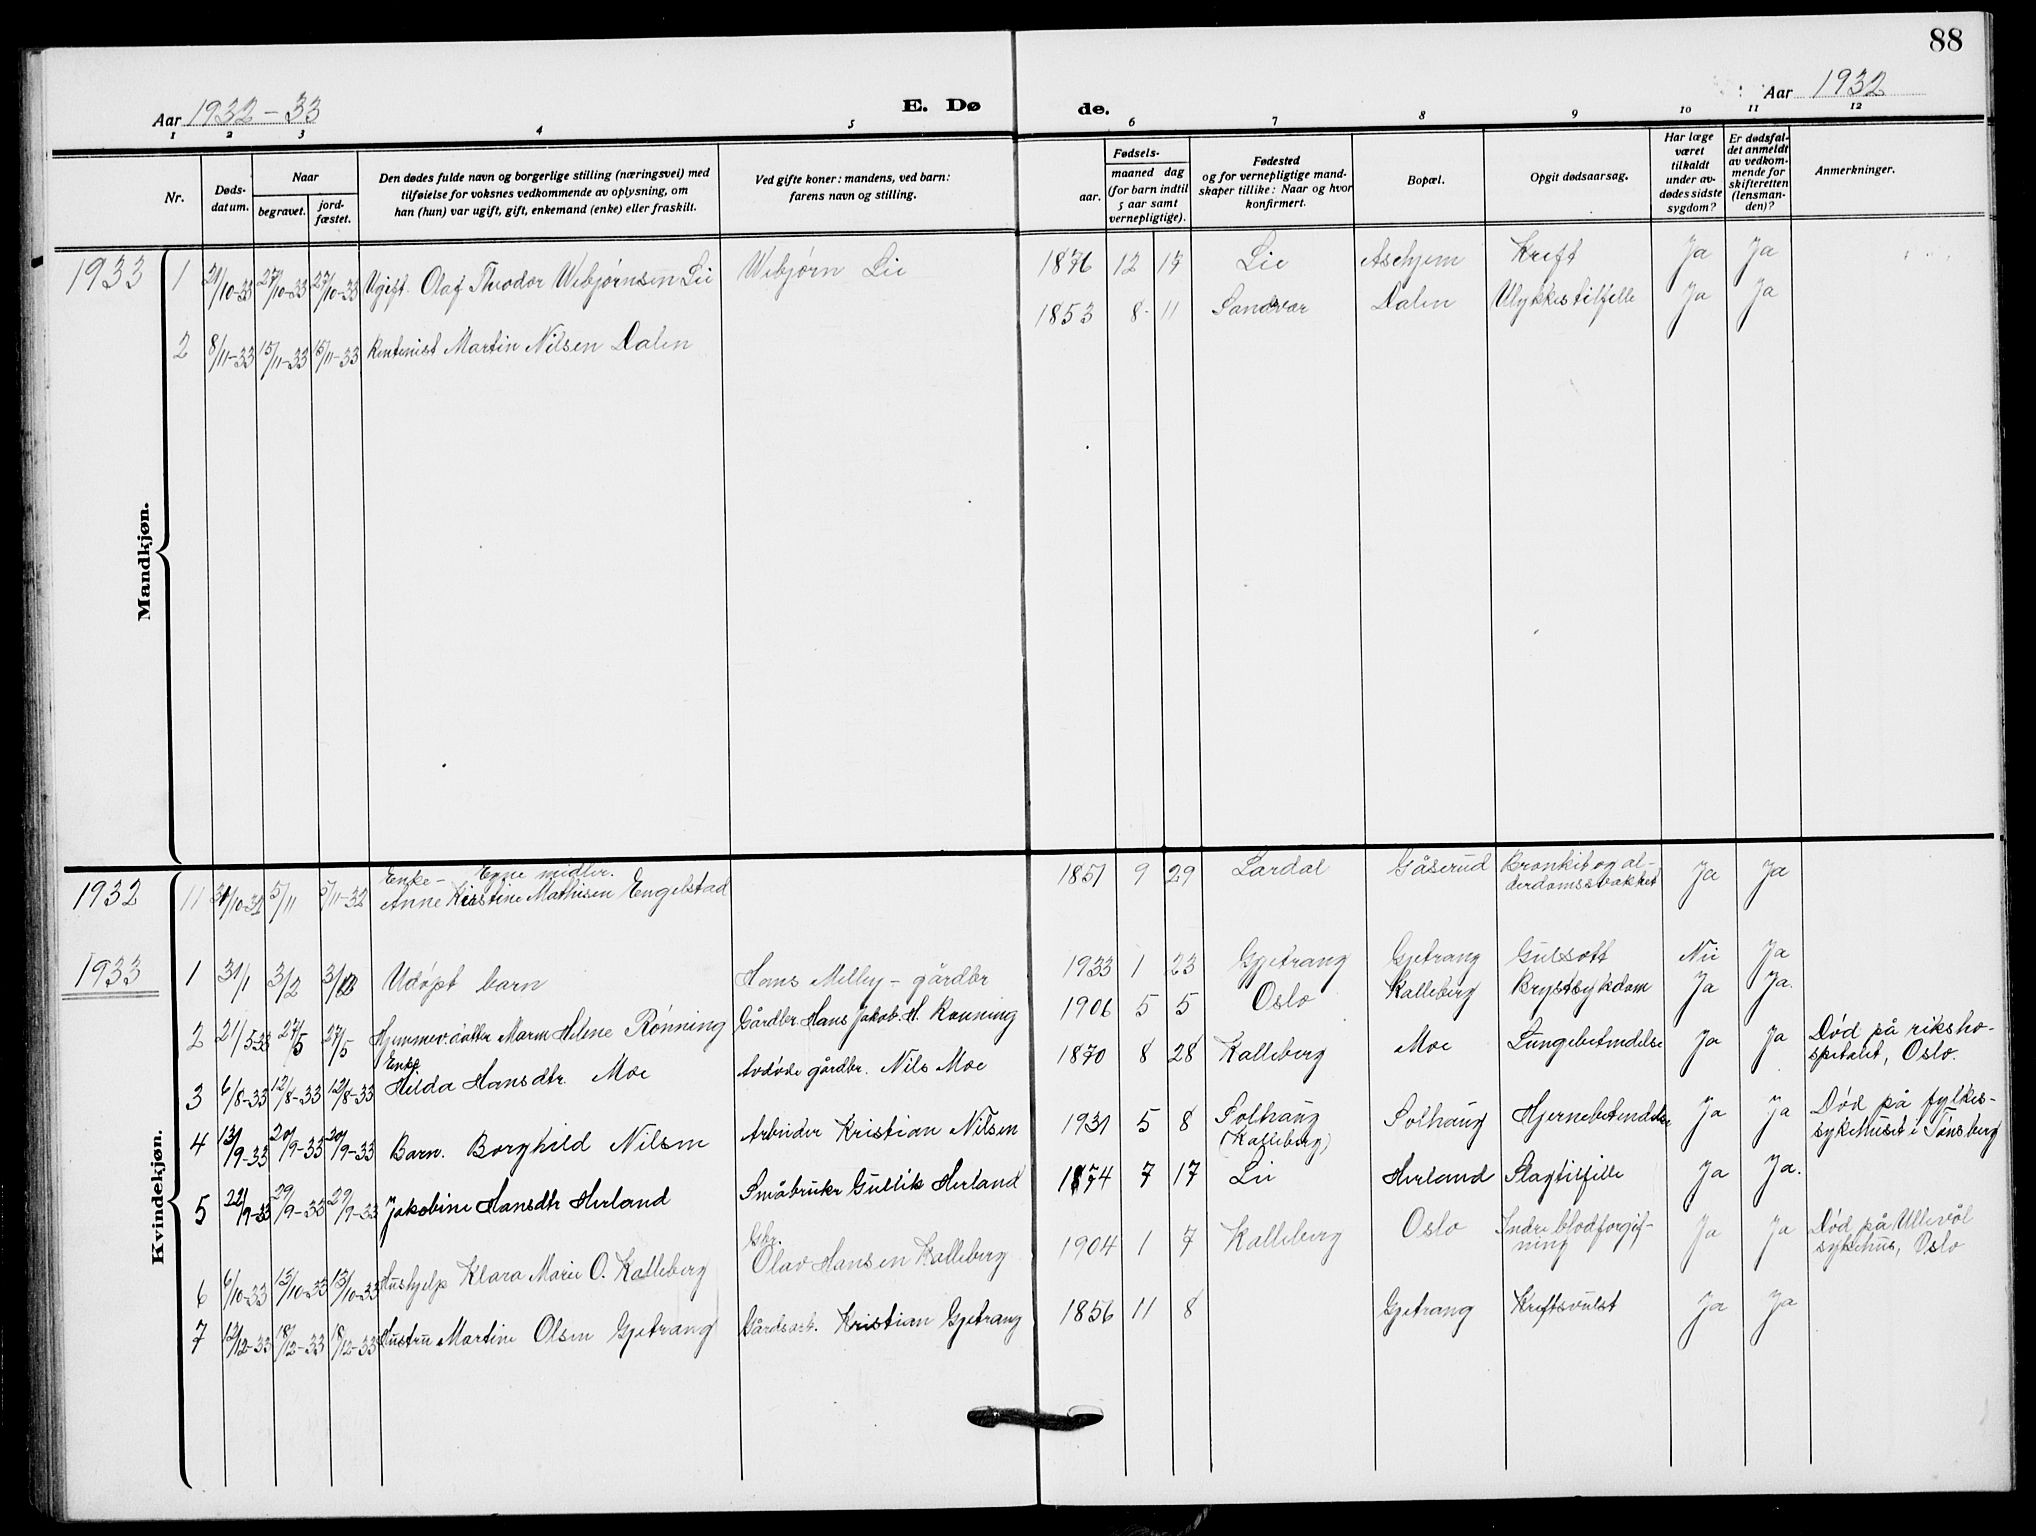 88
Aar 1932-33 E. Dø de. Aar 1932
1 2 3 4 5 6 7 8 9 10 11 12
Nr.
Døds-
datum.
Naar
begravet.
jord-
fæstet.
Den dødes fulde navn og borgerlige stilling (næringsvei) med
tilføielse for voksnes vedkommende av oplysning, om
han (hun) var ugift, gift, enkemand (enke) eller fraskilt.
Ved gifte koner: mandens, ved barn:
farens navn og stilling.
Fødsels-
aar.
maaned dag
(for barn indtil
5 aar samt
vernepligtige).
Fødested
og for vernepligtige mand-
skaper tillike: Naar og hvor
konfirmert.
Bopæl.
Opgit dødsaarsag.
Har læge
været
tilkaldt
under av-
dødes sidste
sygdom?
Er dødsfal-
det anmeldt
av vedkom-
mende for
skifteretten
(lensman-
den)?
Anmerkninger.
Mandkjøn.
1933 1 21/10-33 27/10-33 27/10-33 Ugift. Olaf Theodor Webjørnsen Lie Webjørn Lie 1876 12 17 Lie Askjem Kreft Ja Ja
2 8/11-33 15/11-33 15/11-33 Rentenist Martin Nilsen Dalen 1853 8 11 Sandsvær Dalen Ulykkestilfelle Ja Ja
Kvindekjøn.
Enke- Egne midler.
1932 11 5/11 5/11-32 Anne Kirstine Mathisen Engelstad 1851 9 29 Lardal Gåserud Bronkit og al-
derdomssvakhet Ja Ja
1933 1 31/1 3/2 Udøpt barn Hans Melby - gårdbr 1933 1 23 Gjetrang Gjetrang Gulsott Nei Ja
2 21/5-33 27/5 27/5 Hjemmev. datter Maren Helene Rønning Gårdbr Hans Jakob. H. Rønning 1906 5 5 Oslo Kalleberg Brystsykdom Ja Ja. Død på riksho-
spitalet, Oslo.
Enke
3 6/8-33 12/8-33 12/8-33 Hilda Hansdtr. Moe Avdøde gårdbr. Nils Moe 1870 8 28 Kalleberg Moe Lungebetendelse Ja Ja
4 13/9-33 20/9-33 20/9-33 Barn. Borghild Nilsen Arbeider Kristian Nilsen 1931 5 8 Solhaug
(Kalleberg) Solhaug Hjernebetendelse Ja Ja Død på fylkes-
sykehuset i Tønsberg
5 22/9-33 29/9-33 29/9-33 Jakobine Hansdtr Herland Småbruker Gullik Herland 1874 7 17 Lie Herland Slagtilfelle Ja Ja.
Gbr.
6 6/10-33 13/10-33 13/10-33 Hushjelp Klara Marie O. Kalleberg Olav Hansen Kalleberg 1904 1 7 Kalleberg Oslo Indre blodforgif-
ning Ja Ja Død på Ullevål
sykehus, Oslo
7 12/12-33 18/12-33 18/12-33 Hustru Martine Olsen Gjetrang Gårdsarb. Kristian Gjetrang 1856 11 8 Gjetrang Kreftsvulst Ja Ja